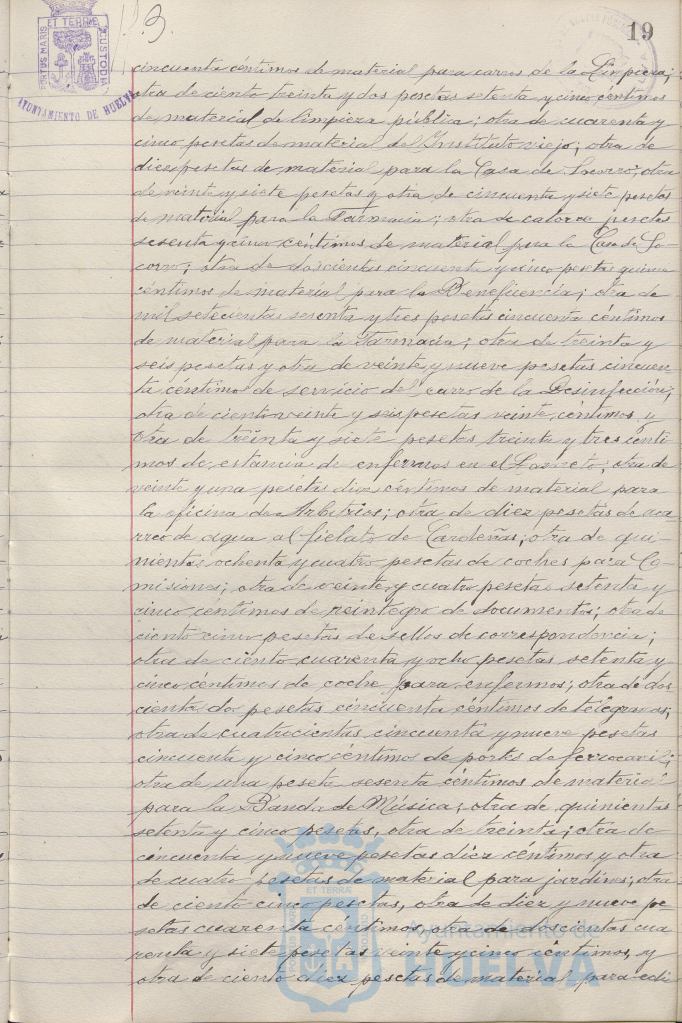 19
PORTUS MARIS ET TERRÆ CUSTODIA
AYUNTAMIENTO DE HUELVA
cincuenta céntimos de material para carros de la Limpieza;
otra de ciento treinta y dos pesetas setenta y cinco céntimos
de material de limpieza pública; otra de cuarenta y
cinco pesetas de material del Instituto viejo; otra de
diez pesetas de material para la Casa de Socorro; otra
de veinte y siete pesetas y otra de cincuenta y siete pesetas
de material para la Farmacia; otra de catorce pesetas
sesenta y cinco céntimos de material para la Casa de So-
corro; otra de doscientas cincuenta y cinco pesetas quince
céntimos de material para la Beneficencia; otra de
mil setecientas sesenta y tres pesetas cincuenta céntimos
de material para la Farmacia; otra de treinta y
seis pesetas y otra de veinte y nueve pesetas cincuen
ta céntimos de servicio del carro de la Desinfección;
otra de ciento veinte y seis pesetas veinte céntimos y
otra de treinta y siete pesetas treinta y tres cénti
mos de estancia de enfermos en el Lazareto; otra de
veinte y una pesetas diez céntimos de material para
la oficina de Arbitrios; otra de diez pesetas de aca-
rreo de agua al fielato de Cardeñas; otra de qui-
nientas ochenta y cuatro pesetas de coches para Co-
misiones; otra de veinte y cuatro pesetas setenta y
cinco céntimos de reintegro de documentos; otra de
ciento cinco pesetas de sellos de correspondencia;
otra de ciento cuarenta y ocho pesetas setenta y
cinco céntimos de coche para enfermos; otra de dos
cientas dos pesetas cincuenta céntimos de telegramas;
otra de cuatrocientas cincuenta y nueve pesetas
cincuenta y cinco céntimos de portes de ferrocarril;
otra de una peseta sesenta céntimos de material
para la Banda de Música; otra de quinientas
setenta y cinco pesetas, otra de treinta; otra de
cincuenta y nueve pesetas diez céntimos y otra
de cuatro pesetas de material para jardines; otra
de ciento cinco pesetas, otra de diez y nueve pe-
setas cuarenta céntimos, otra de doscientas cua
renta y siete pesetas veinte y cinco céntimos, y
otra de ciento diez pesetas de material para edi
Ayuntamiento de
HUELVA